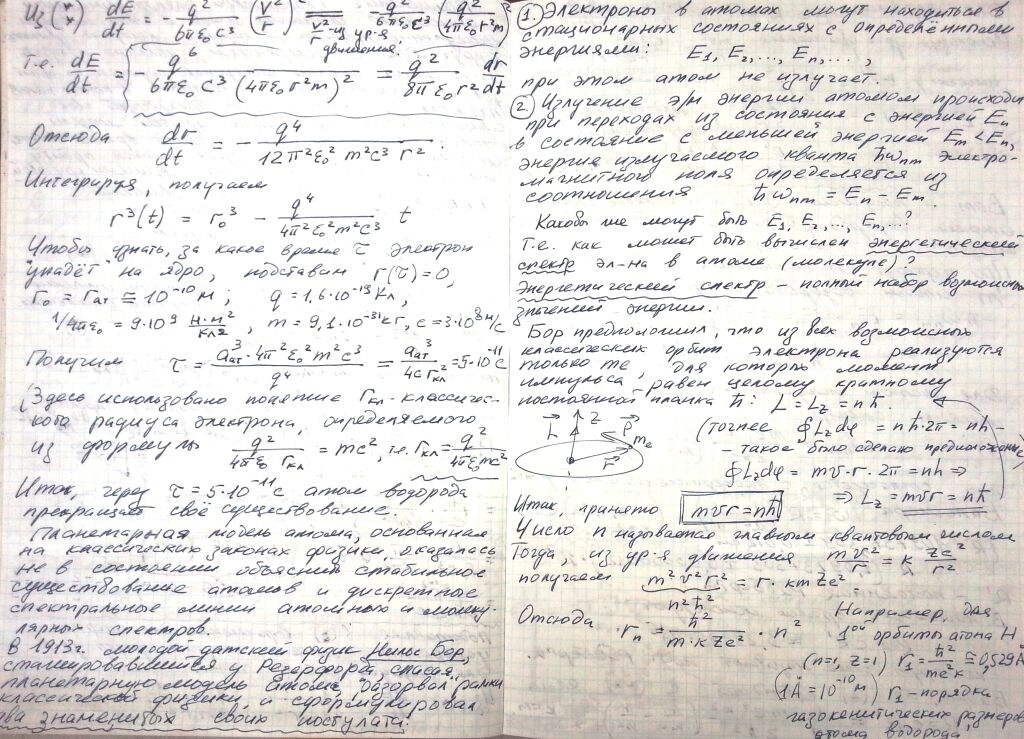 Из (*) dE/dt = - q²/(6πε₀c³) (v²/r)² = q²/(6πε₀c³) (q²/(4πε₀r²m))²
v²/r - из ур-я
движения.
Т.е. dE/dt = - q⁶/(6πε₀c³(4πε₀r²m)²) = q²/(8πε₀r²) dr/dt
Отсюда dr/dt = - q⁴/(12π²ε₀²m²c³r²).
Интегрируя, получаем
r³(t) = r₀³ - q⁴/(4π²ε₀²m²c³) t
Чтобы узнать, за какое время τ электрон
"упадёт" на ядро, подставим r(τ) = 0,
r₀ = rат ≅ 10⁻¹⁰ м; q = 1,6·10⁻¹⁹ Кл,
1/4πε₀ = 9·10⁹ Н·м²/Кл², m = 9,1·10⁻³¹ кг, c = 3·10⁸ м/с
Получим τ = aат³·4π²ε₀²m²c³/q⁴ = aат³/(4c rкл²) = 5·10⁻¹¹ с
(Здесь использовано понятие rкл - классичес-
кого радиуса электрона, определяемого
из формулы q²/(4πε₀ rкл) = mc², т.е. rкл = q²/(4πε₀mc²)
Итак, через τ = 5·10⁻¹¹ с атом водорода
прекращает своё существование.
Планетарная модель атома, основанная
на классических законах физики, оказалась
не в состоянии объяснить стабильное
существование атомов и дискретные
спектральные линии атомных и молеку-
лярных спектров.
В 1913г. молодой датский физик Нильс Бор,
стажировавшийся у Резерфорда, спасая
планетарную модель атома, разорвал рамки
классической физики, и сформулировал
два знаменитых своих постулата:
1. Электроны в атомах могут находиться в
стационарных состояниях с определёнными
энергиями: E₁, E₂, ..., Eₙ, ...,
при этом атом не излучает.
2. Излучение э/м энергии атомом происходи
при переходах из состояния с энергией Eₙ
в состояние с меньшей энергией Eₘ < Eₙ,
энергия излучаемого кванта ħωₙₘ электро-
магнитного поля определяется из
соотношения ħωₙₘ = Eₙ - Eₘ.
Каковы же могут быть E₁, E₂, ..., Eₙ, ...?
Т.е. как может быть вычислен энергетический
спектр эл-на в атоме (молекуле)?
Энергетический спектр - полный набор возможных
значений энергии.
Бор предположил, что из всех возможных
классических орбит электрона реализуются
только те, для которых момент
импульса равен целому кратному
постоянной планка ħ: L = L_z = nħ.
z L p mₑ r
(точнее ∮L_z dφ = nħ·2π = nh -
- такое было сделано предположение)
∮L_z dφ = mv·r·2π = nh ⇒
⇒ L_z = mvr = nħ
Итак, принято mvr = nħ
Число n называется главным квантовым числом
Тогда, из ур-я движения mv²/r = k ze²/r²
получаем m²v²r² = r·kmZe²
n²ħ²
Отсюда rₙ = ħ²/(m·kZe²) · n²
Например, для
1ой орбиты атома H
(n=1, Z=1) r₁ = ħ²/(me²k) ≅ 0,529Å
(1Å = 10⁻¹⁰ м) r₁ - порядка
газокинетических размеров
атома водорода,